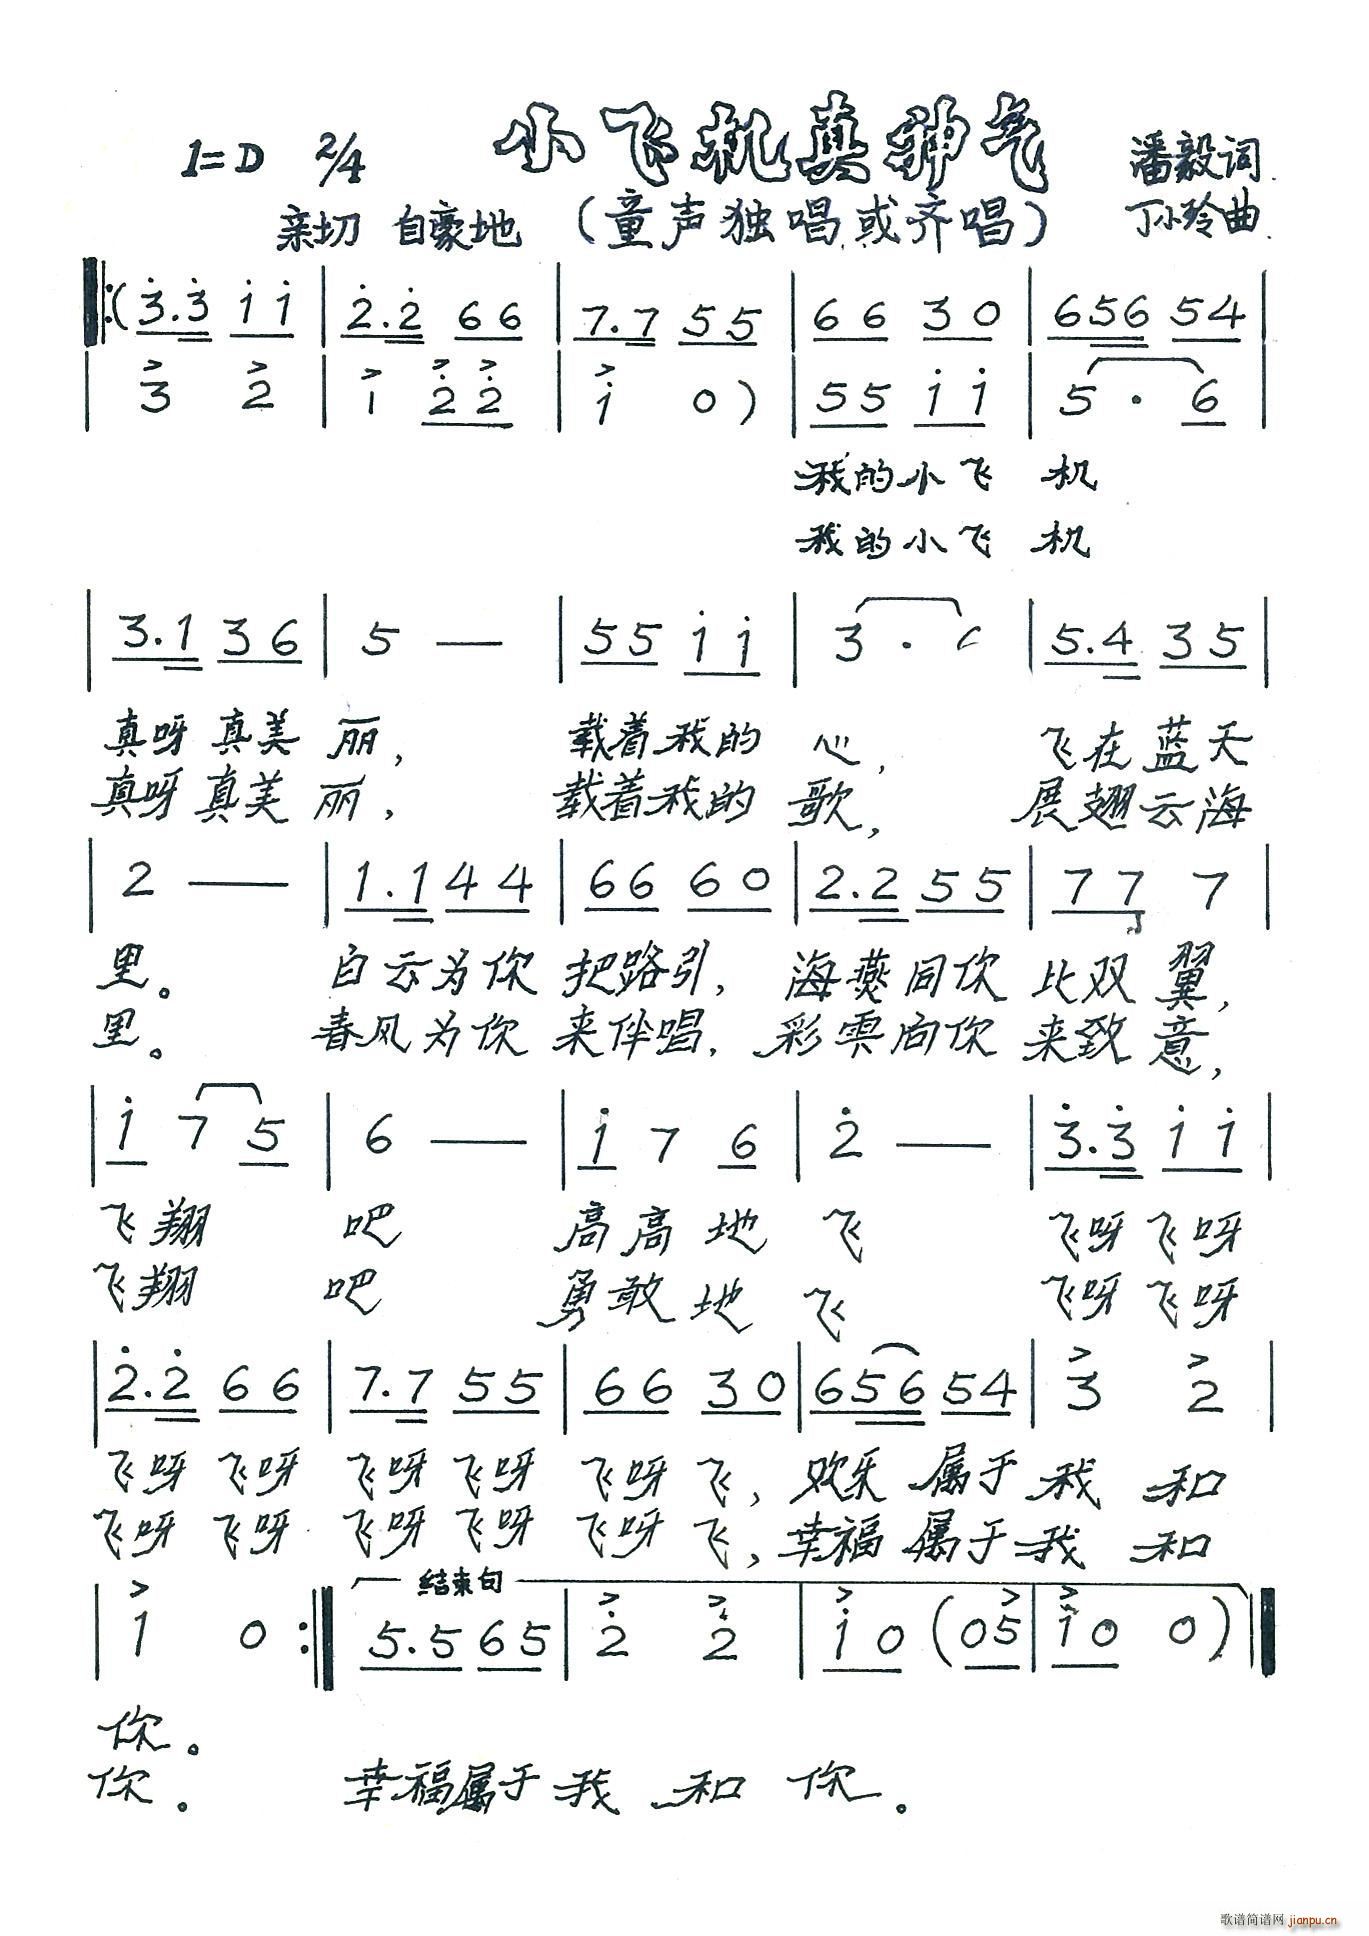 小飞机真神气
1=D 2/4
潘毅词
亲切 自豪地 (童声独唱或齐唱) 丁小玲曲
(3.3 1 1 | 2.2 6 6 | 7.7 5 5 | 6 6 3 0 | 656 54 |
3 2 | 1 2 2 | 1 0) | 5 5 1 1 | 5 . 6 |
我的小飞 机
我的小飞 机
| 3.1 3 6 | 5 — | 5 5 1 1 | 3 . | 5.4 3 5 |
真呀真美 丽, 载着我的 心, 飞在蓝天
真呀真美 丽, 载着我的 歌, 展翅云海
| 2 — | 1.1 4 4 | 6 6 6 0 | 2.2 5 5 | 7 7 7 |
里。 白云为你 把路引, 海燕同你 比双翼,
里。 春风为你 来伴唱, 彩雲向你 来致意,
| 1 7 5 | 6 — | 1 7 6 | 2 — | 3.3 1 1 |
飞翔 吧 高高地 飞 飞呀飞呀
飞翔 吧 勇敢地 飞 飞呀飞呀
| 2.2 6 6 | 7.7 5 5 | 6 6 3 0 | 656 54 | 3 2 |
飞呀飞呀 飞呀飞呀 飞呀飞, 欢乐属于我 和
飞呀飞呀 飞呀飞呀 飞呀飞, 幸福属于我 和
| 1 0 :| 結束句 5.5 6 5 | 2 2 | 1 0 (0 5 | 1 0 0) |
你。
你。 幸福属于我 和 你。
歌谱简谱网 jianpu.cn